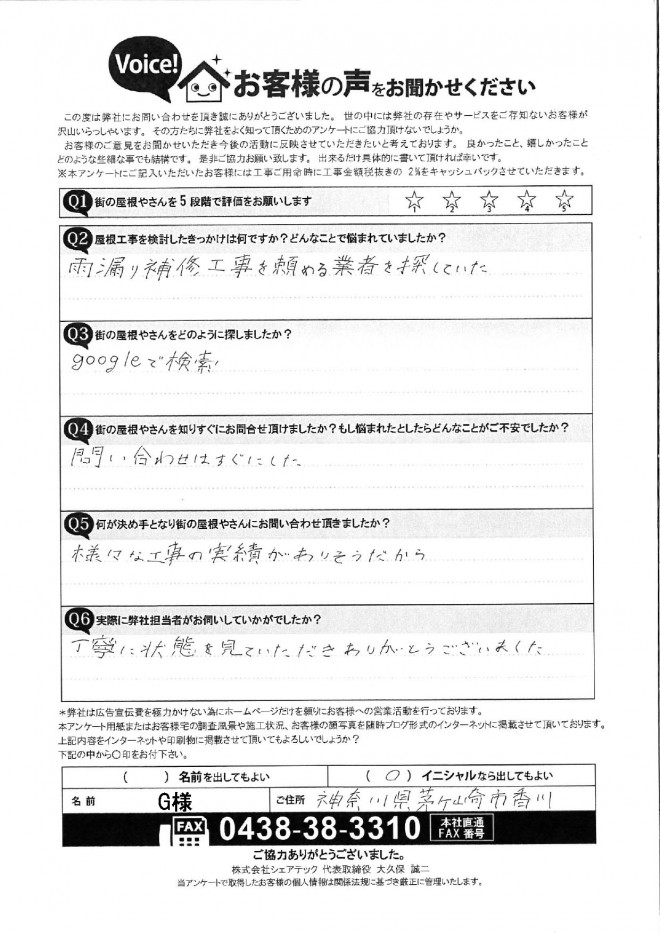 Voice!
お客様の声をお聞かせください
この度は弊社にお問い合わせを頂き誠にありがとうございました。 世の中には弊社の存在やサービスをご存知ないお客様が
沢山いらっしゃいます。 その方たちに弊社をよく知って頂くためのアンケートにご協力頂けないでしょうか。
お客様のご意見をお聞かせいただき今後の活動に反映させていただきたいと考えております。 良かったこと、嬉しかったこと
どのような些細な事でも結構です。 是非ご協力お願い致します。 出来るだけ具体的に書いて頂ければ幸いです。
※本アンケートにご記入いただいたお客様には工事ご用命時に工事金額税抜きの 2%をキャッシュバックさせていただきます。
Q1 街の屋根やさんを5段階で評価をお願いします ☆1 ☆2 ☆3 ☆4 ☆5
Q2 屋根工事を検討したきっかけは何ですか？どんなことで悩まれていましたか？
雨漏り補修工事を頼める業者を探していた
Q3 街の屋根やさんをどのように探しましたか？
googleで検索
Q4 街の屋根やさんを知りすぐにお問合せ頂けましたか？もし悩まれたとしたらどんなことがご不安でしたか？
問い合わせはすぐにした
Q5 何が決め手となり街の屋根やさんにお問い合わせ頂きましたか？
様々な工事の実績がありそうだから
Q6 実際に弊社担当者がお伺いしていかがでしたか？
丁寧に状態を見ていただきありがとうございました
＊弊社は広告宣伝費を極力かけない為にホームページだけを頼りにお客様への営業活動を行っております。
本アンケート用紙またはお客様宅の調査風景や施工状況、お客様の顔写真を随時ブログ形式のインターネットに掲載させて頂いております。
上記内容をインターネットや印刷物に掲載させて頂いてもよろしいでしょうか？
下記の中から〇印をお付下さい。
（ ）名前を出してもよい （ ○ ）イニシャルなら出してもよい
名前 G様 ご住所 神奈川県茅ヶ崎市香川
FAX 0438-38-3310 本社直通 FAX番号
ご協力ありがとうございました。
株式会社シェアテック 代表取締役 大久保 誠二
当アンケートで取得したお客様の個人情報は関係法規に基づき厳正に管理いたします。